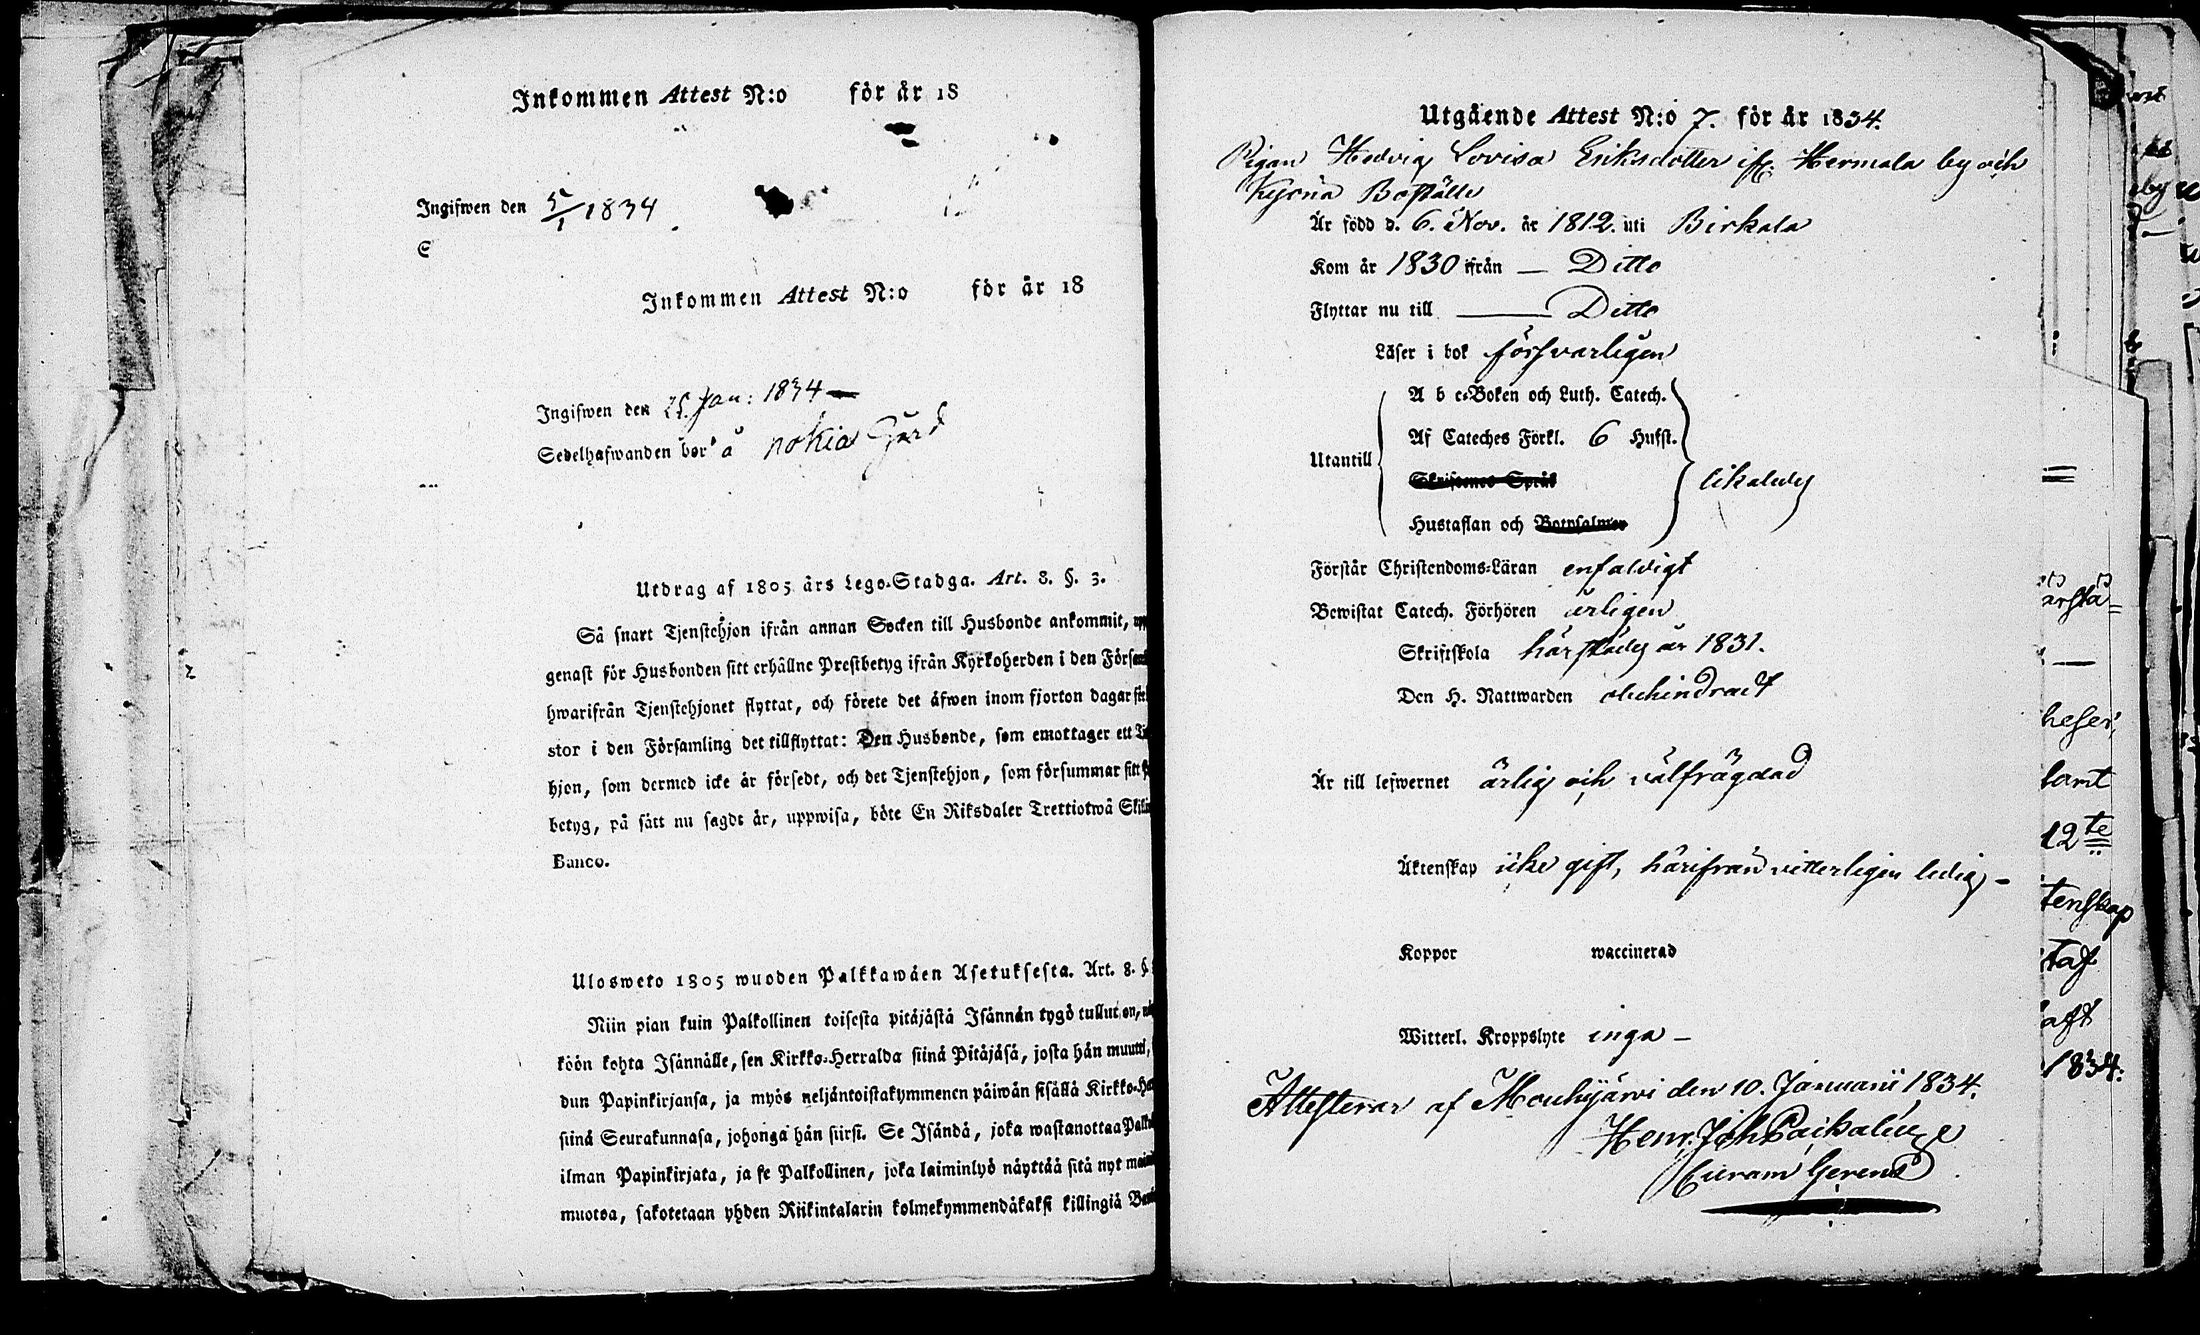 Inkommen Attest N:o för år 18
Ingifwen den 5/1 1834
S
Inkommen Attest N:o för år 18
Ingifwen den 25. Jan: 1834
Sedelhafwanden bor å Nokia Gård
Utdrag af 1805 års Lego-Stadga. Art. 8. §. 3.
Så snart Tjenstehjon ifrån annan Socken till Husbonde ankommit,
genast för Husbonden sitt erhållne Prestbetyg ifrån Kyrkoherden i den
hwarifrån Tjenstehjonet flyttat, och förete det åfwen inom fjorton dagar
stor i den Församling det tillflyttat: Den Husbonde, som emottager ett
hjon, som dermed icke år försedt, och det Tjenstehjon, som försummar sitt
betyg, på sått nu sagdt år, uppwisa, böte En Riksdaler Trettiotwå
Banco.
Ulosweto 1805 wuoden Palkkawåen Asetuksesta. Art. 8. §.
Niin pian kuin Palkollinen toisesta pitåjåstå Isånnån tygö tullut on,
köön kohta Isånnålle, sen Kirkko-Herralda siinå Pitåjåså, josta hån muutti,
dun Papinkirjansa, ja myös neljåntoistakymmenen påiwån sisållå
siinå Seurakunnasa, johonga hån siirsi. Se Isåndå, joka wastanottaa
ilman Papinkirjata, ja se Palkollinen, joka laiminlyö nåyttåå sitå nyt
muotoa, sakotetaan yhden Riikintalarin kolmekymmendåkaksi killingiå
Utgående Attest N:o 7. för år 1834.
Pigan Hedvig Lovisa Eriksdotter ifr. Hermala by och
Kejona Boställe
År född d. 6. Nov. år 1812. uti Birkala
Kom år 1830 ifrån — Ditto
Flyttar nu till — Ditto
Låser i bok försvarligen
A b c-Boken och Luth. Catech.
Af Cateches Förkl. 6 Hufst.
Utantill
Skriftenes Språk
likaledes
Hustaflan och Botpsalmer
Förstår Christendoms-Låran enfaldigt
Bewistat Catech. Förhören årligen
Skriftskola härstädes år 1831.
Den H. Nattwarden obehindradt
År till lefwernet ärlig och välfrägdad
Åktenskap icke gift, härifrån vitterligen ledig —
Koppor waccinerad
Witterl. Kroppslyte inga —
Attesterar af Mouhijärvi den 10. Januarii 1834.
Henr. Joh.
Curam Gerens
heser,
12te
tenskap
1834.